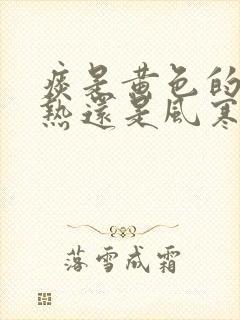 痰是黄色的
熱還是風寒
落雪成霜